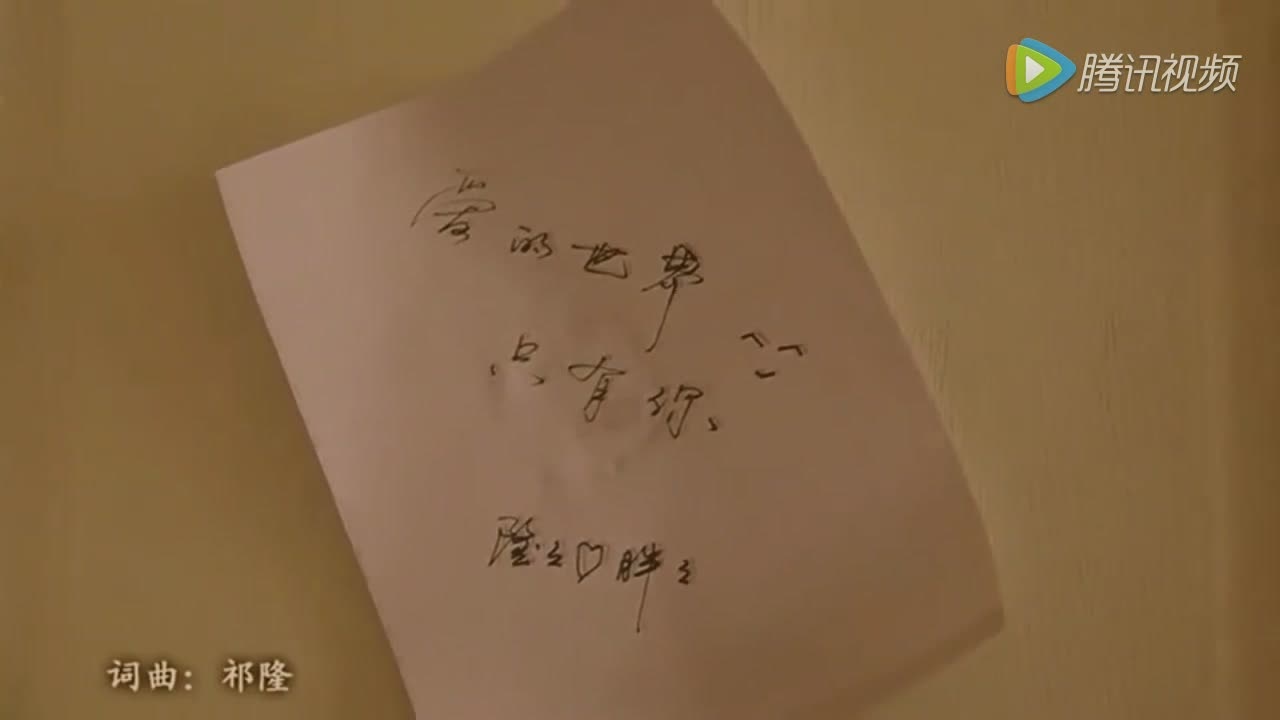 腾讯视频
爱的世界
只有你、
隆々♡胖々
词曲：祁隆